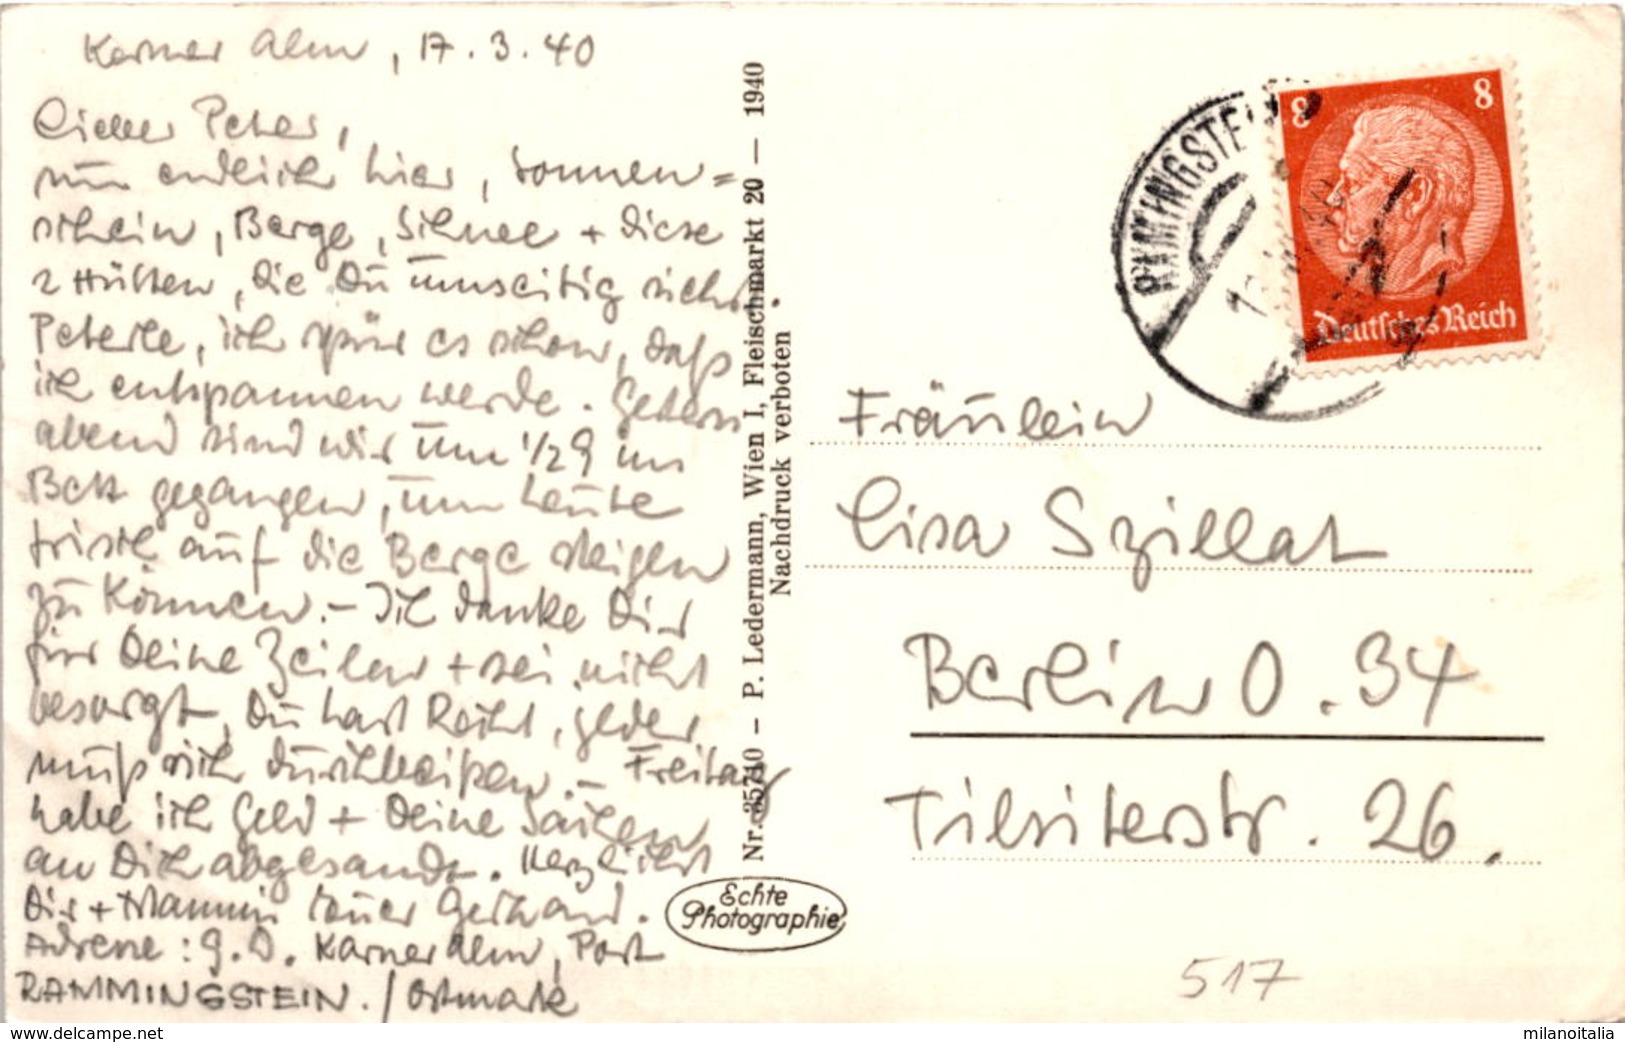 Karner Alm, 17.3.40
Lieber Peter,
nun endlich hier, Sonnen=
schein, Berge, Schnee + diese
2 Hütten, die Du umseitig siehst.
Peterle, ich spür es schon, daß
ich entspannen werde. Gestern
abend sind wir um 1/2 9 ins
Bett gegangen, um heute
frisch auf die Berge steigen
zu können. – Ich danke Dir
für Deine Zeilen + sei nicht
besorgt, Du hast Recht, jeder
muß sich durchbeißen. – Freitag
habe ich Geld + Deine Sachen
an Dich abgesandt. Herzlichst
Dir + Mammi Euer Gerhard.
Adresse: g. D. Karner Alm, Post
RAMMINGSTEIN. / Ostmark
Nr. 35710 – P. Ledermann, Wien I, Fleischmarkt 20 – 1940
Nachdruck verboten
Echte
Photographie
RAMMINGSTEIN
8 8
Deutsches Reich
Fräulein
Lisa Szillat
Berlin O. 34
Tilsiterstr. 26.
517
www.delcampe.net
milanoitalia